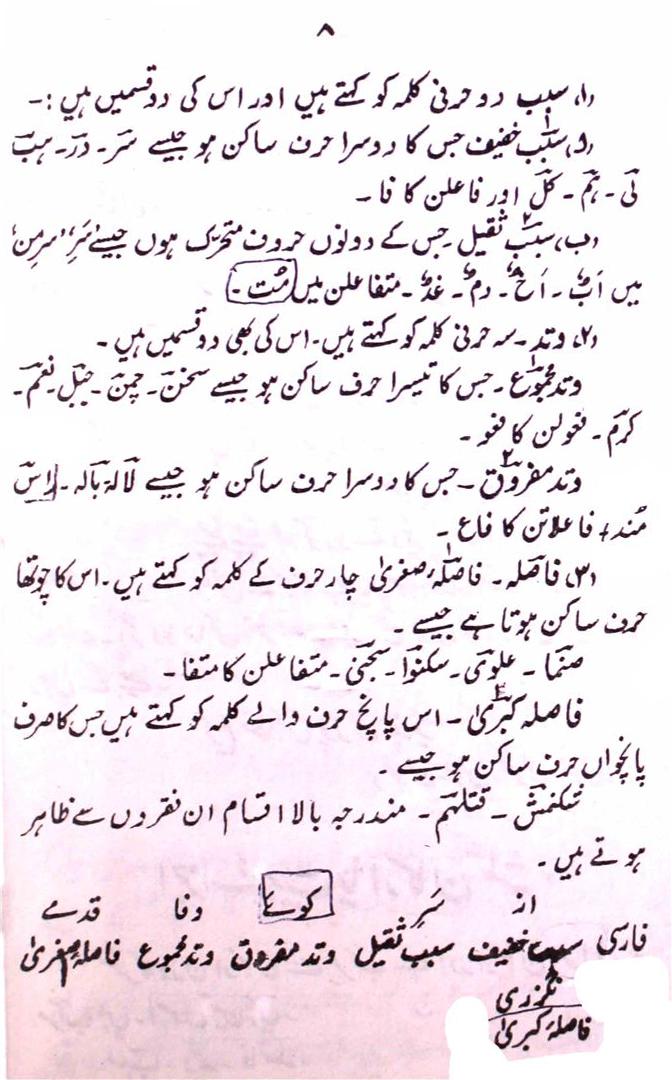 ۸
(۱) سبب دو حرفی کلمہ کو کہتے ہیں اور اس کی دو قسمیں ہیں :-
(ا) سببِ خفیف جس کا دوسرا حرف ساکن ہو جیسے سَر۔ دَر۔ ہب
لَی۔ ہَم۔ کَل اور فاعلن کا فا۔
(ب) سببِ ثقیل جس کے دونوں حروف متحرک ہوں جیسے سَرِ، سرِ من
میں اَبُ۔ اَخُ۔ دمُ۔ غدُ۔ متفاعلن میں مُتَ۔
(۲) وتد۔ سہ حرفی کلمہ کو کہتے ہیں۔ اس کی بھی دو قسمیں ہیں۔
وتدِ مجموع۔ جس کا تیسرا حرف ساکن ہو جیسے سخن۔ چمن۔ جبل۔ نعم۔
کرم۔ فعولن کا فعو۔
وتد مفروق۔ جس کا دوسرا حرف ساکن ہو جیسے لالہ ژالہ۔ راس
مُند، فاعلاتن کا فاع۔
(۳) فاصلہ۔ فاصلۂ صغریٰ چار حرف کے کلمہ کو کہتے ہیں۔ اس کا چوتھا
حرف ساکن ہوتا ہے جیسے۔
صنما۔ علوی۔ سکنوا۔ متفاعلن کا متفا۔
فاصلہ کبریٰ۔ اس پانچ حرف والے کلمہ کو کہتے ہیں جس کا صرف
پانچواں حرف ساکن ہو جیسے۔
شکنمش۔ قتلہم۔ مندرجہ بالا اقسام ان فقروں سے ظاہر
ہوتے ہیں۔
از سَرِ کوئے وفا قدمے
فارسی سبب خفیف سببِ ثقیل وتد مفروق وتد مجموع فاصلہ صغریٰ
نگزری
فاصلۂ کبریٰ